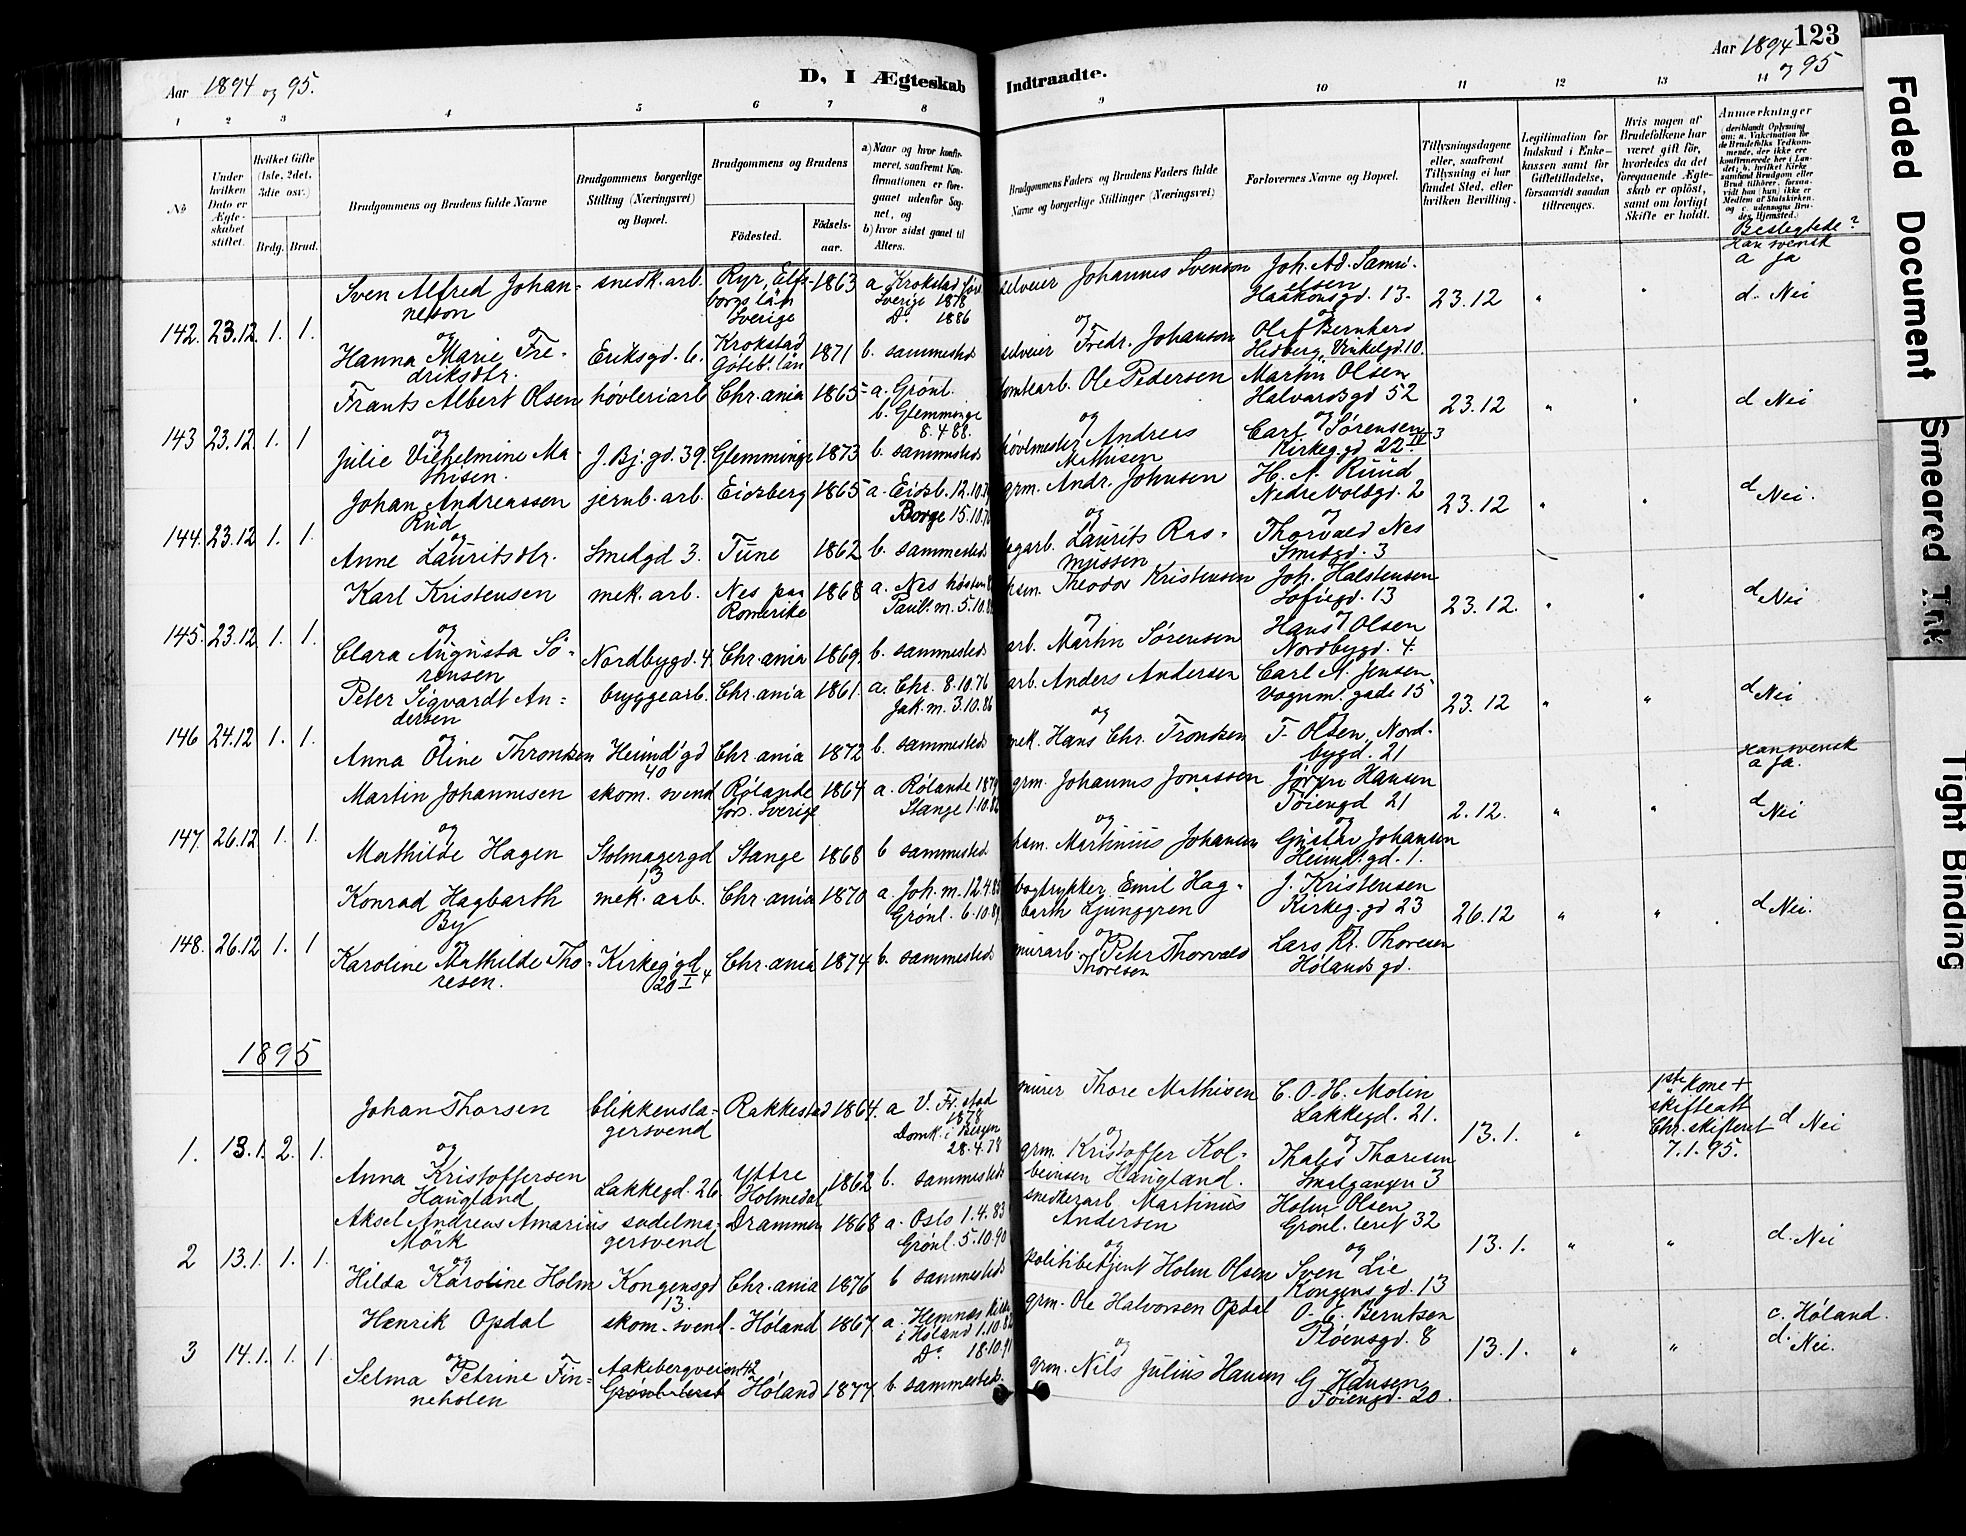 Aar 1894 og 95.
D, I Ægteskab
Indtraadte.
Aar 1894 123
og 95
1 2 3 4 5 6 7 8 9 10 11 12 13 14
No
Under hvilken Dato er Ægteskabet stiftet.
Hvilket Gifte (1ste, 2det, 3die osv.)
Brdg. Brud.
Brudgommens og Brudens fulde Navne
Brudgommens borgerlige Stilling (Næringsvei) og Bopæl.
Brudgommens og Brudens
Födested. Födselsaar.
a) Naar og hvor konfirmeret, saafremt Konfirmationen er foregaaet udenfor Sognet, og
b) hvor sidst gaaet til Alters.
Brudgommens Faders og Brudens Faders fulde Navne og borgerlige Stillinger (Næringsvei)
Forlovernes Navne og Bopæl.
Tillysningsdagene eller, saafremt Tillysning ei har fundet Sted, efter hvilken Bevilling.
Legitimation for Indskud i Enkekassen samt for Giftetilladelse, forsaavidt saadan tiltrænges.
Hvis nogen af Brudefolkene har været gift för, hvorledes da det foregaaende Ægteskab er oplöst, samt om lovligt Skifte er holdt.
Anmærkninger
Beslegtede?
142. 23.12 1. 1.
Sven Alfred Johannesson snedk. arb. Ryr, Elfsborgs län Sverige 1863 a. Krokstad Sverige 1878 Do 1886 selveier Johannes Svenson Joh. Ad. Samuelsen Haakonsgd. 13. 23.12 " " Han svensk a ja d. Nei
og
Hanna Marie Fredriksdtr. Eriksgd. 6. Krokstad Göteb. län 1871 b. sammesteds selveier Fredr. Johanson Olaf Bernhard Hedberg, Vinkelgd. 10.
143 23.12 1. 1
Frants Albert Olsen høvleriarb Chr.ania 1865 a. Grønl. b. Glemminge 8.4.88. tomtearb. Ole Pedersen Martin Olsen Halvardsgd 52 23.12 " " d Nei
og
Julie Vilhelmine Mathisen. J. Bj. gd. 39. Glemminge 1873 b. sammesteds høvlmester Andreas Mathisen Carl Sørensen Kirkeg. gd 22 IV 3
144. 23.12 1. 1.
Johan Andreassen Rud jernb. arb. Eidsberg 1865 a. Eidsb. 12.10. Borge 15.10. grm. Andr. Johnsen H. A. Ruud Nedre Voldsgd. 2 23.12 " " d Nei.
og
Anne Lauritsdtr. Smedgd 3. Tune 1862 b. sammesteds Laurits Rasmussen Thorvald Nes Smedgd. 3
145. 23.12 1. 1.
Karl Kristensen mek. arb. Nes paa Romerike 1868 a. Nes høsten Paul. m. 5.10. hsm. Theodor Kristensen Joh. Halstensen Sofiegd. 13 23.12. " " d Nei
og
Clara Augusta Sörensen Nordbygd. 4. Chr.ania 1869. b. sammesteds arb. Martin Sørensen Hans Olsen Nordbygd. 4.
146 24.12 1. 1.
Peter Sigvardt Andersen bryggearb. Chr.ania 1861. a. Chr. 8.10.76 Jak. m. 3.10.86 arb. Anders Andersen Carl A. Jensen Vognm. gade 15 23.12 " " d Nei
og
Anna Oline Throndsen Heimd. gd 40 Chr.ania 1872 b. sammesteds mek. Hans Chr. Trondsen T. Olsen, Nordbygd. 21
147. 26.12 1. 1.
Martin Johannesen skom. svend Rölanda fors. Sverige 1864 a. Rölande 1879 Stange 1.10. grm. Johannes Jonassen Jörgen Hansen Töiengd 21 2.12. " " Han svensk a ja. d Nei
og
Mathilde Hagen Stolmagergd 13 Stange 1868 b sammesteds hsm. Martinius Johansen Gustav Johansen Heimd. gd. 1.
148. 26.12 1. 1
Konrad Hagbarth By mek. arb. Chr.ania 1870 a. Joh. m. 12.4. Grønl. 6.10. bogtrykker Emil Hagbarth Ljunggren J. Kristensen Kirkeg. gd 23 26.12 " " d Nei.
og
Karoline Mathilde Thoresen. Kirkeg. gd 20 I 4 Chr.ania 1874 b. sammesteds murarb. Peter Thorvald Thoresen Lars Kr. Thoresen Hølands gd.
1895
1. 13.1. 2. 1.
Johan Thorsen blikkenslagersvend Rakkestad 1864. a V. Fr.stad 1878 Domk. i Bergen 28.4.78 murer Thore Mathisen C. O. H. Molin Lakkegd. 21. 13.1. " 1ste kone + skifteatt Chr. skifteret 7.1.95. d Nei
og
Anna Kristoffersen Haugland Lakkegd. 26 Yttre Holmedal 1862 b. sammesteds grm. Kristoffer Kolbeinsen Haugland. Thales Thoresen Smalgangen 3
2 13.1. 1. 1.
Aksel Andreas Amarius Mörk sadelmagersvend Drammen 1868 a. Oslo 1.4.83 Grönl. 5.10.90 snedkerarb. Martinius Andersen Holm Olsen Grønl. leret 32 13.1. " " d. Nei
og
Hilda Karoline Holm Kongensgd 13. Chr.ania 1876 b sammesteds politibetjent Holm Olsen Sven Lie Kongens gd. 13
3 14.1. 1. 1.
Henrik Opdal skom. svend Höland 1867 a. Hemnes kirke i Høland 1.10. Do 18.10.91 grm. Ole Halvorsen Opdal O. E. Berntsen Pløensgd. 8 13.1. " " c. Høland. d. Nei.
og
Selma Petrine Finneholen Aakebergveien 42 Grønl. leret Höland 1877. b. sammesteds. grm. Nils Julius Hansen G Hansen Töiengd. 20.
Faded Document
Smeared Ink
Tight Binding